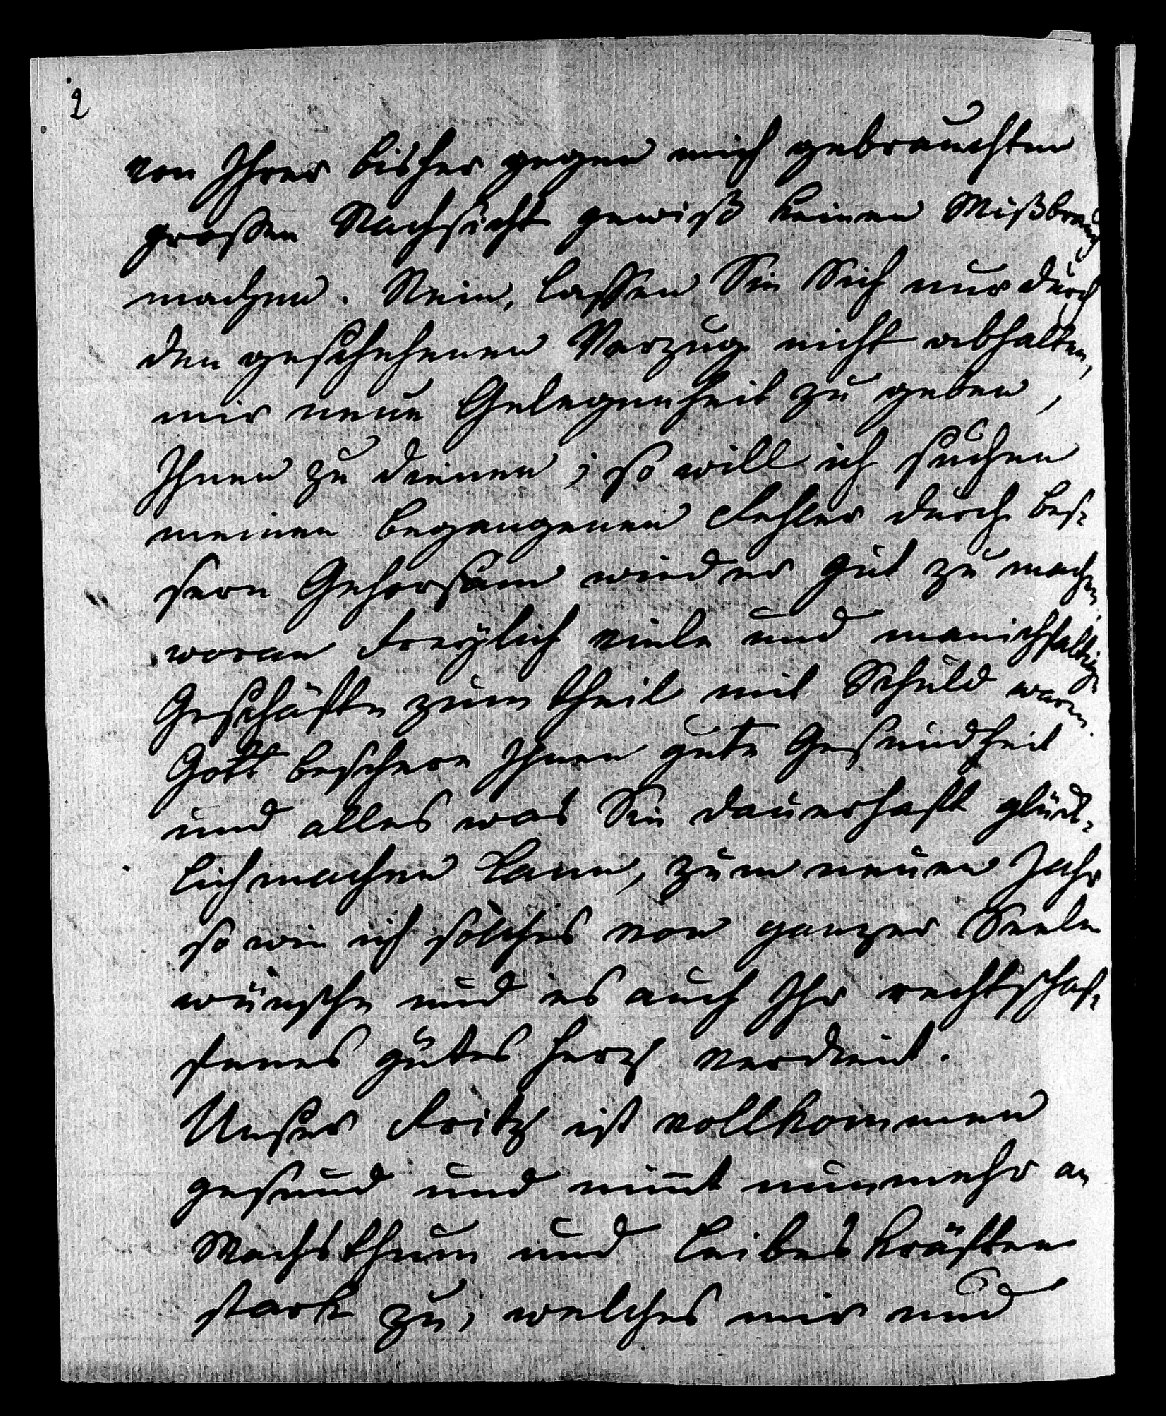 2
von Ihrer bisher gegen mich gebrauchten
großen Nachsicht gewiß keinen Mißbrauch
machen. Nein, lassen Sie Sich nur durch
den geschehenen Verzug nicht abhalten,
mir neue Gelegenheit zu geben,
Ihnen zu dienen; so will ich suchen
meinen begangenen Fehler durch bes-
sern Gehorsam wieder gut zu machen
woran freylich viele und manichfaltige
Geschäfte zum theil mit Schuld waren.
Gott beschere Ihnen gute Gesundheit
und alles was Sie dauerhaft glück-
lich machen kann, zum neuen Jahr
so wie ich solches von ganzer Seele
wünsche und es auch Ihr rechtschaf-
fenes gutes Herz verdient.
Unser Fritz ist vollkommen
gesund und nimt nunmehr an
Wachsthum und Leibeskräften
stark zu, welches mir und